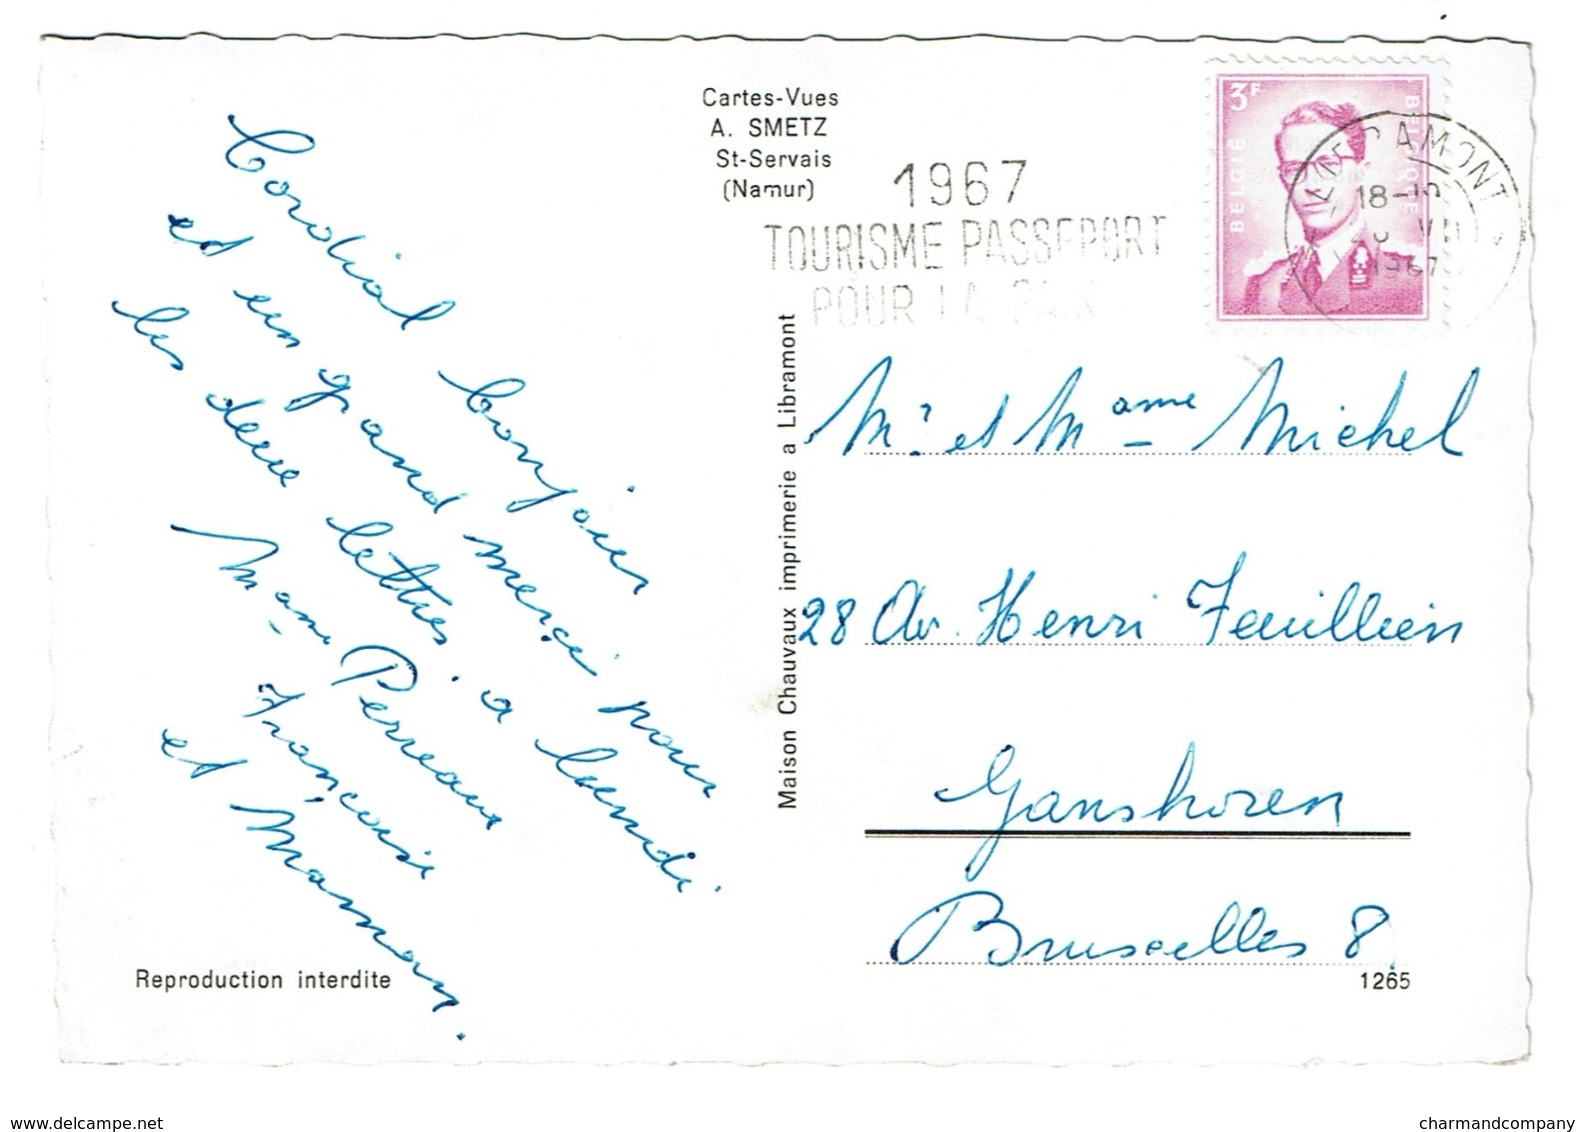 Cartes-Vues
A. SMETZ
St-Servais
(Namur)
1967
TOURISME PASSEPORT
POUR LA PAIX
3F
BELGIË
BELGIQUE
RAMONT
18-
1967
Cordial bonjour
et un grand merci pour
les deux lettres, a lundi
Mame Perreaux
Françoise
et Maman.
Maison Chauvaux imprimerie a Libramont
Mr et Mame Michel
28 Av. Henri Feuillien
Ganshoren
Bruxelles 8
Reproduction interdite
1265
www.delcampe.net
charmandcompany